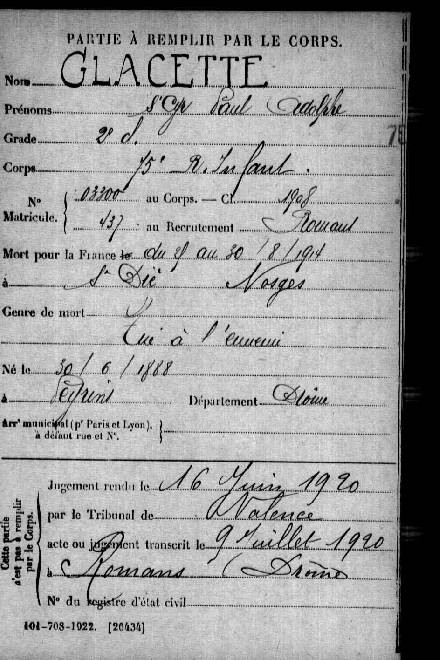 PARTIE À REMPLIR PAR LE CORPS.
Nom GLACETTE
Prénoms St Cyr Paul Adolphe
Grade 2e cl.
Corps 75e R. Infant.
N° Matricule. { 03300 au Corps. — Cl. 1908
437 au Recrutement Romans
Mort pour la France le du 25 au 30 / 8 / 1914
à St Dié Vosges
Genre de mort
Tué à l'ennemi
Né le 30 / 6 / 1888
à Peyrins Département Drôme
Arrt municipal (pr Paris et Lyon), à défaut rue et N°. }
Cette partie n'est pas à remplir par le Corps.
Jugement rendu le 16 Juin 1920
par le Tribunal de Valence
acte ou jugement transcrit le 9 Juillet 1920
à Romans (Drôme)
N° du registre d'état civil
101-708-1922. [26434]